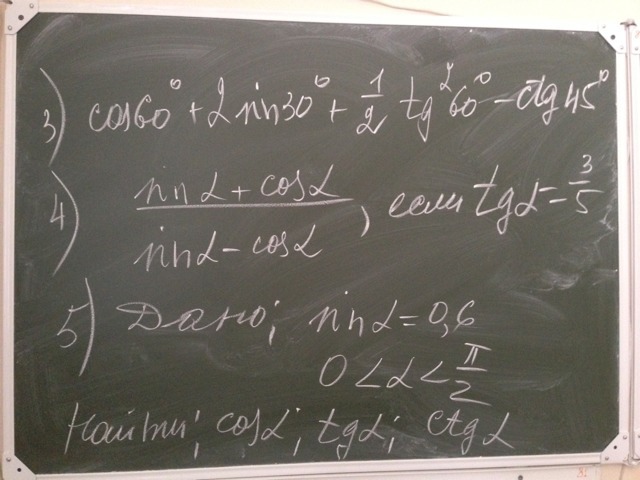 3) cos60° + 2 sin30° + 1/2 tg²60° - ctg45°
4) (sin α + cos α)/(sin α - cos α), если tg α = 3/5
5) Дано: sin α = 0,6
0 < α < π/2
Найти: cos α; tg α; ctg α